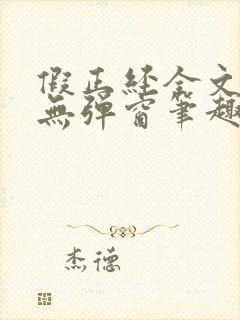 假正經全文
無彈窗筆趣
杰德